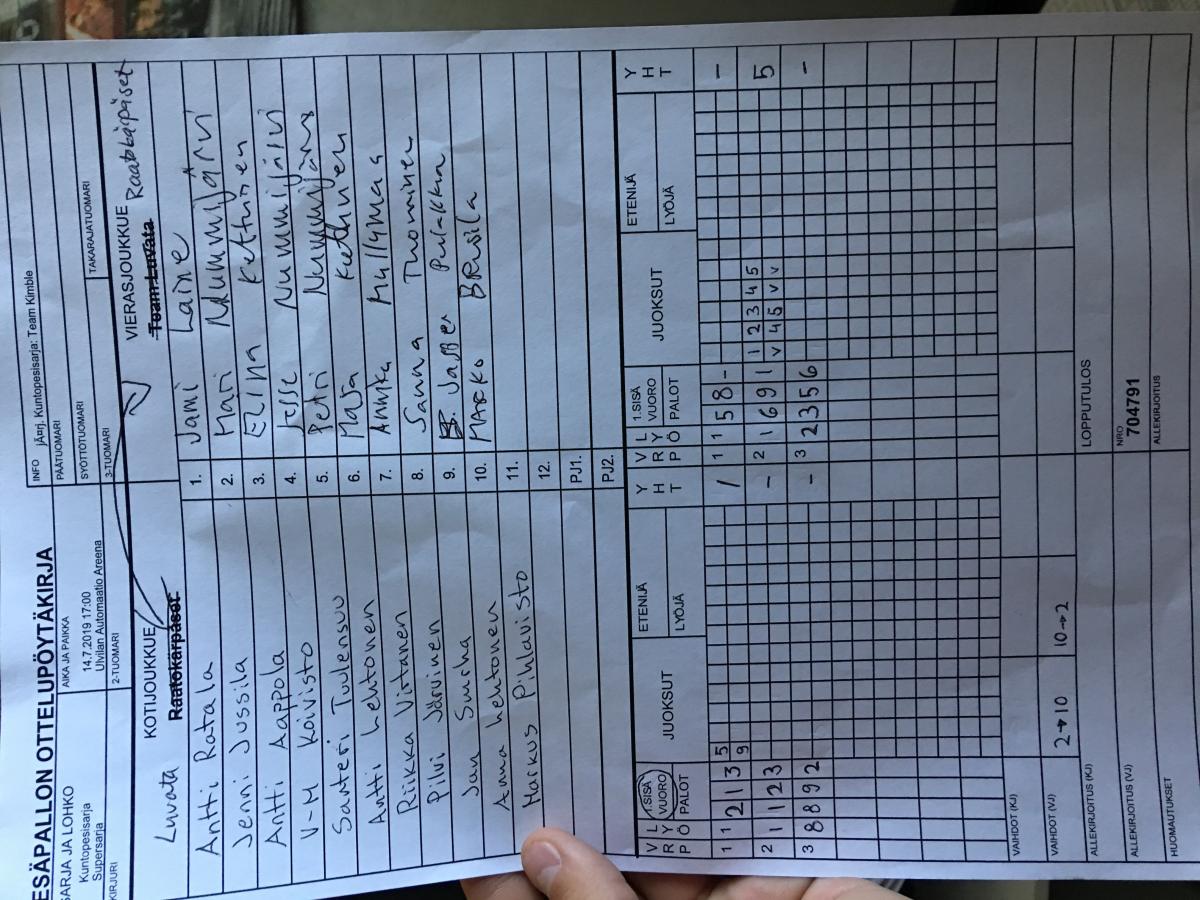 PESÄPALLON OTTELUPÖYTÄKIRJA
INFO järj, Kuntopesisarja: Team Kimble
SARJA JA LOHKO
Kuntopesisarja
Supersarja
AIKA JA PAIKKA
14.7.2019 17:00
Ulvilan Automaatio Areena
PÄÄTUOMARI
SYÖTTÖTUOMARI
KIRJURI
2-TUOMARI
3-TUOMARI
TAKARAJATUOMARI
KOTIJOUKKUE
Luvata Raatokärpäset
VIERASJOUKKUE
Team Luvata Raatokärpäset
Antti Ratala 1. Jami Laine
Jenni Jussila 2. Mari Nummijärvi
Antti Aappola 3. Elina Kethunen
V-M Koivisto 4. Jesse Nummijärvi
Santeri Tuulensuu 5. Petri Nummijärvi
Antti Lehtonen 6. Maja Kethunen
Riikka Virtanen 7. Annika Myllymaa
Pilvi Järvinen 8. Sanna Tuominen
Jan Surkha 9. Jasper Pulakka
Anna Lehtonen 10. Marko Brusila
Markus Pihlavisto 11.
12.
PJ1.
PJ2.
VRP LYÖ 1.SISÄ VUORO PALOT JUOKSUT ETENIJÄ LYÖJÄ YHT VRP LYÖ 1.SISÄ VUORO PALOT JUOKSUT ETENIJÄ LYÖJÄ YHT
1 1 2 1 3 5 9 / 1 1 5 8 - -
2 1 1 2 3 - 2 1 6 9 1 1 2 3 4 5 v 4 5 v v 5
3 8 8 9 2 - 3 2 3 5 6 -
VAIHDOT (KJ)
VAIHDOT (VJ) 2→10 10→2
ALLEKIRJOITUS (KJ) LOPPUTULOS
ALLEKIRJOITUS (VJ) NRO 704791
HUOMAUTUKSET ALLEKIRJOITUS